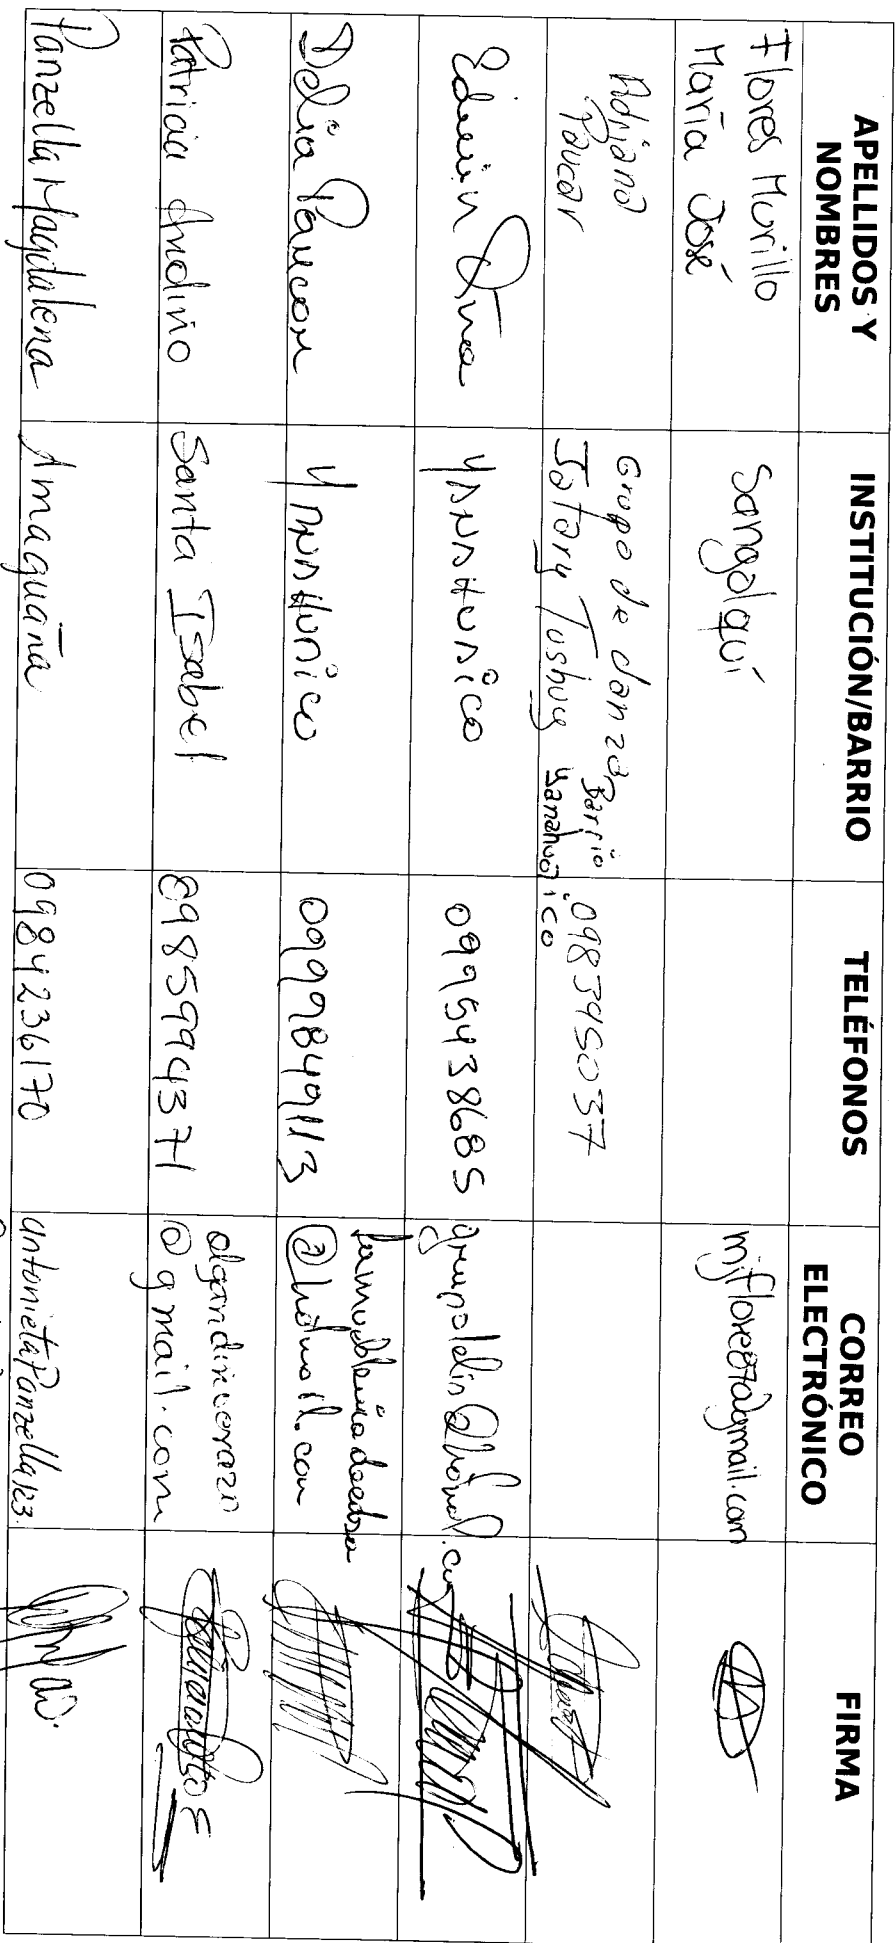 APELLIDOS Y NOMBRES INSTITUCIÓN/BARRIO TELÉFONOS CORREO ELECTRÓNICO FIRMA
Flores Murillo
María José
Sangolquí
mjflores87@gmail.com
Adriana
Paucar
Grupo de danza
Jatary Tushuy
Barrio
Yanahuaico
098395037
Edwin
Yanahuaico
0995438685
Delia Paucar
Yanahuaico
0999849113
@hotmail.com
Patricia Andino
Santa Isabel
8985994371
olgandinocorazon
@gmail.com
Panzella Magdalena
Amaguaña
0984236170
antonietaPanzella123.